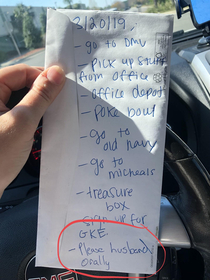 3/20/19
- go to DMV
- Pick up stuff
from office
- office depot
- Poke bowl
- go to
old navy
- go to
micheals
- treasure
box
- sign up for
GKE
- Please husband
orally